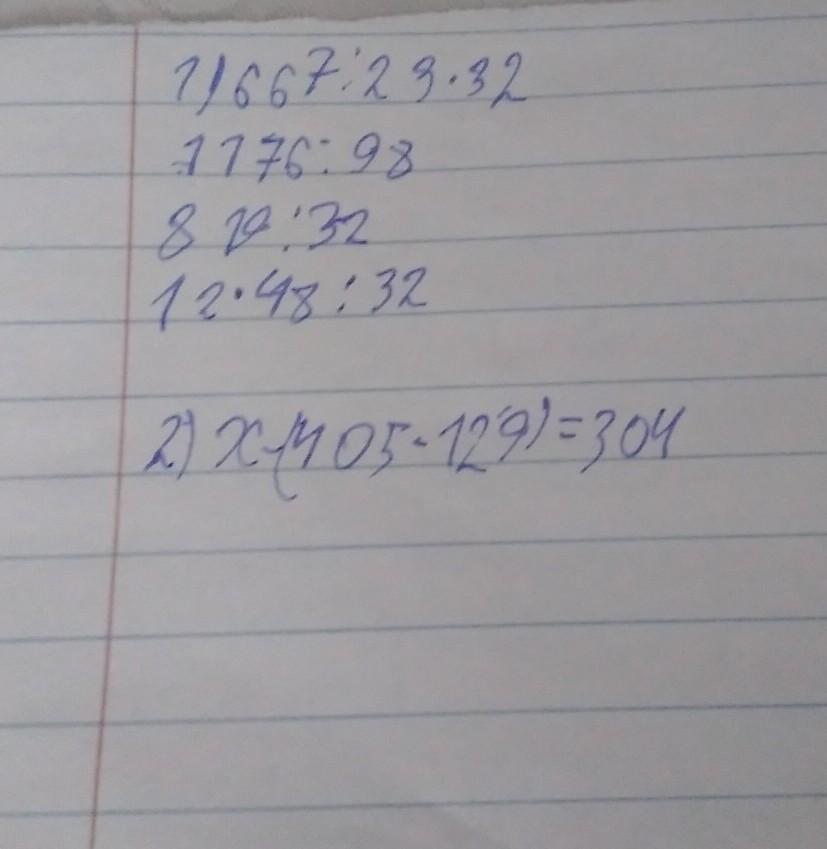 1) 667:23·32
1176:98
:32
12·48:32
2) x-(405-129)=304